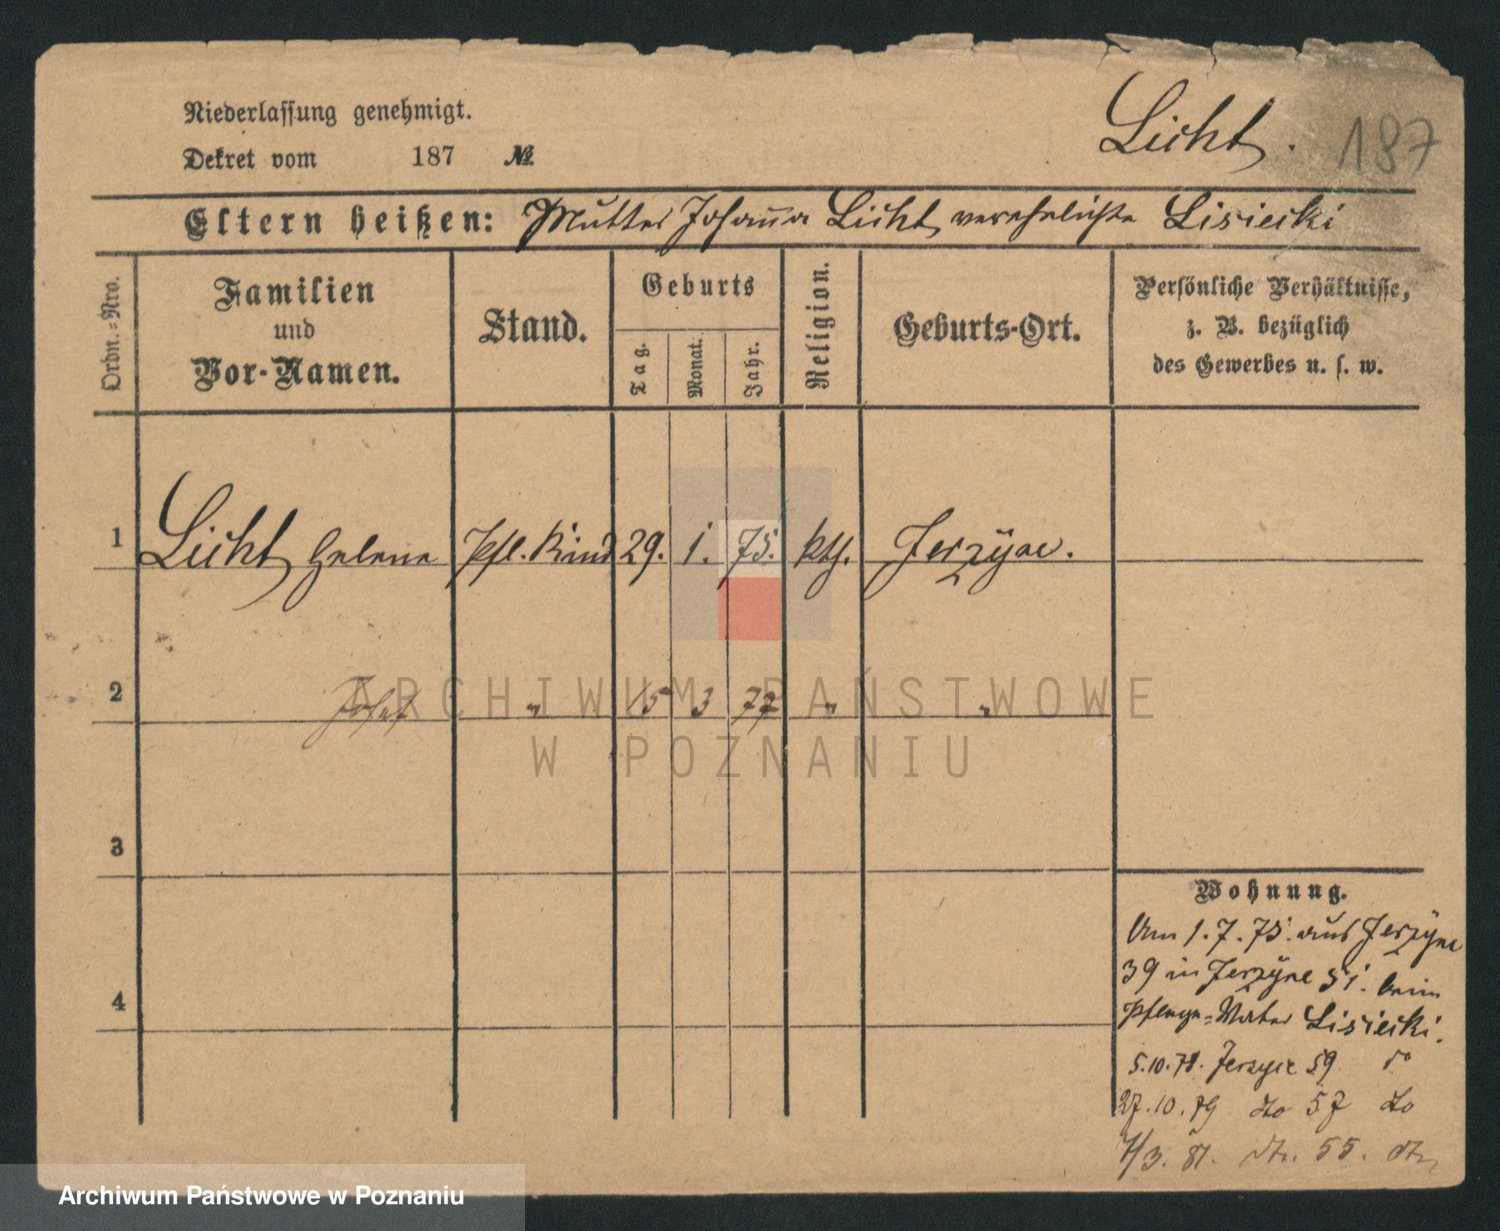 Niederlassung genehmigt.
Licht.
187
Dekret vom 187 №
Eltern heißen: Mutter Johanna Licht, verehelichte Lisiecki
Ordn.=Nro.
Familien
und
Vor-Namen.
Stand.
Geburts
Tag.
Monat.
Jahr.
Religion.
Geburts-Ort.
Persönliche Verhältnisse,
z. B. bezüglich
des Gewerbes u. s. w.
1 Licht, Helene Pfl. Kind 29. 1. 75. kth. Jerzyce.
2 Josef " 15 3 77 " "
3
4
Wohnung.
Am 1.7.75. aus Jerzyce
39 in Jerzyce 51. beim
Pflege=Vater Lisiecki.
5.10.78. Jerzyce 59 do
27.10.79 dto 57 dto
7/3. 81. dto. 55. dto
ARCHIWUM PAŃSTWOWE
W POZNANIU
Archiwum Państwowe w Poznaniu